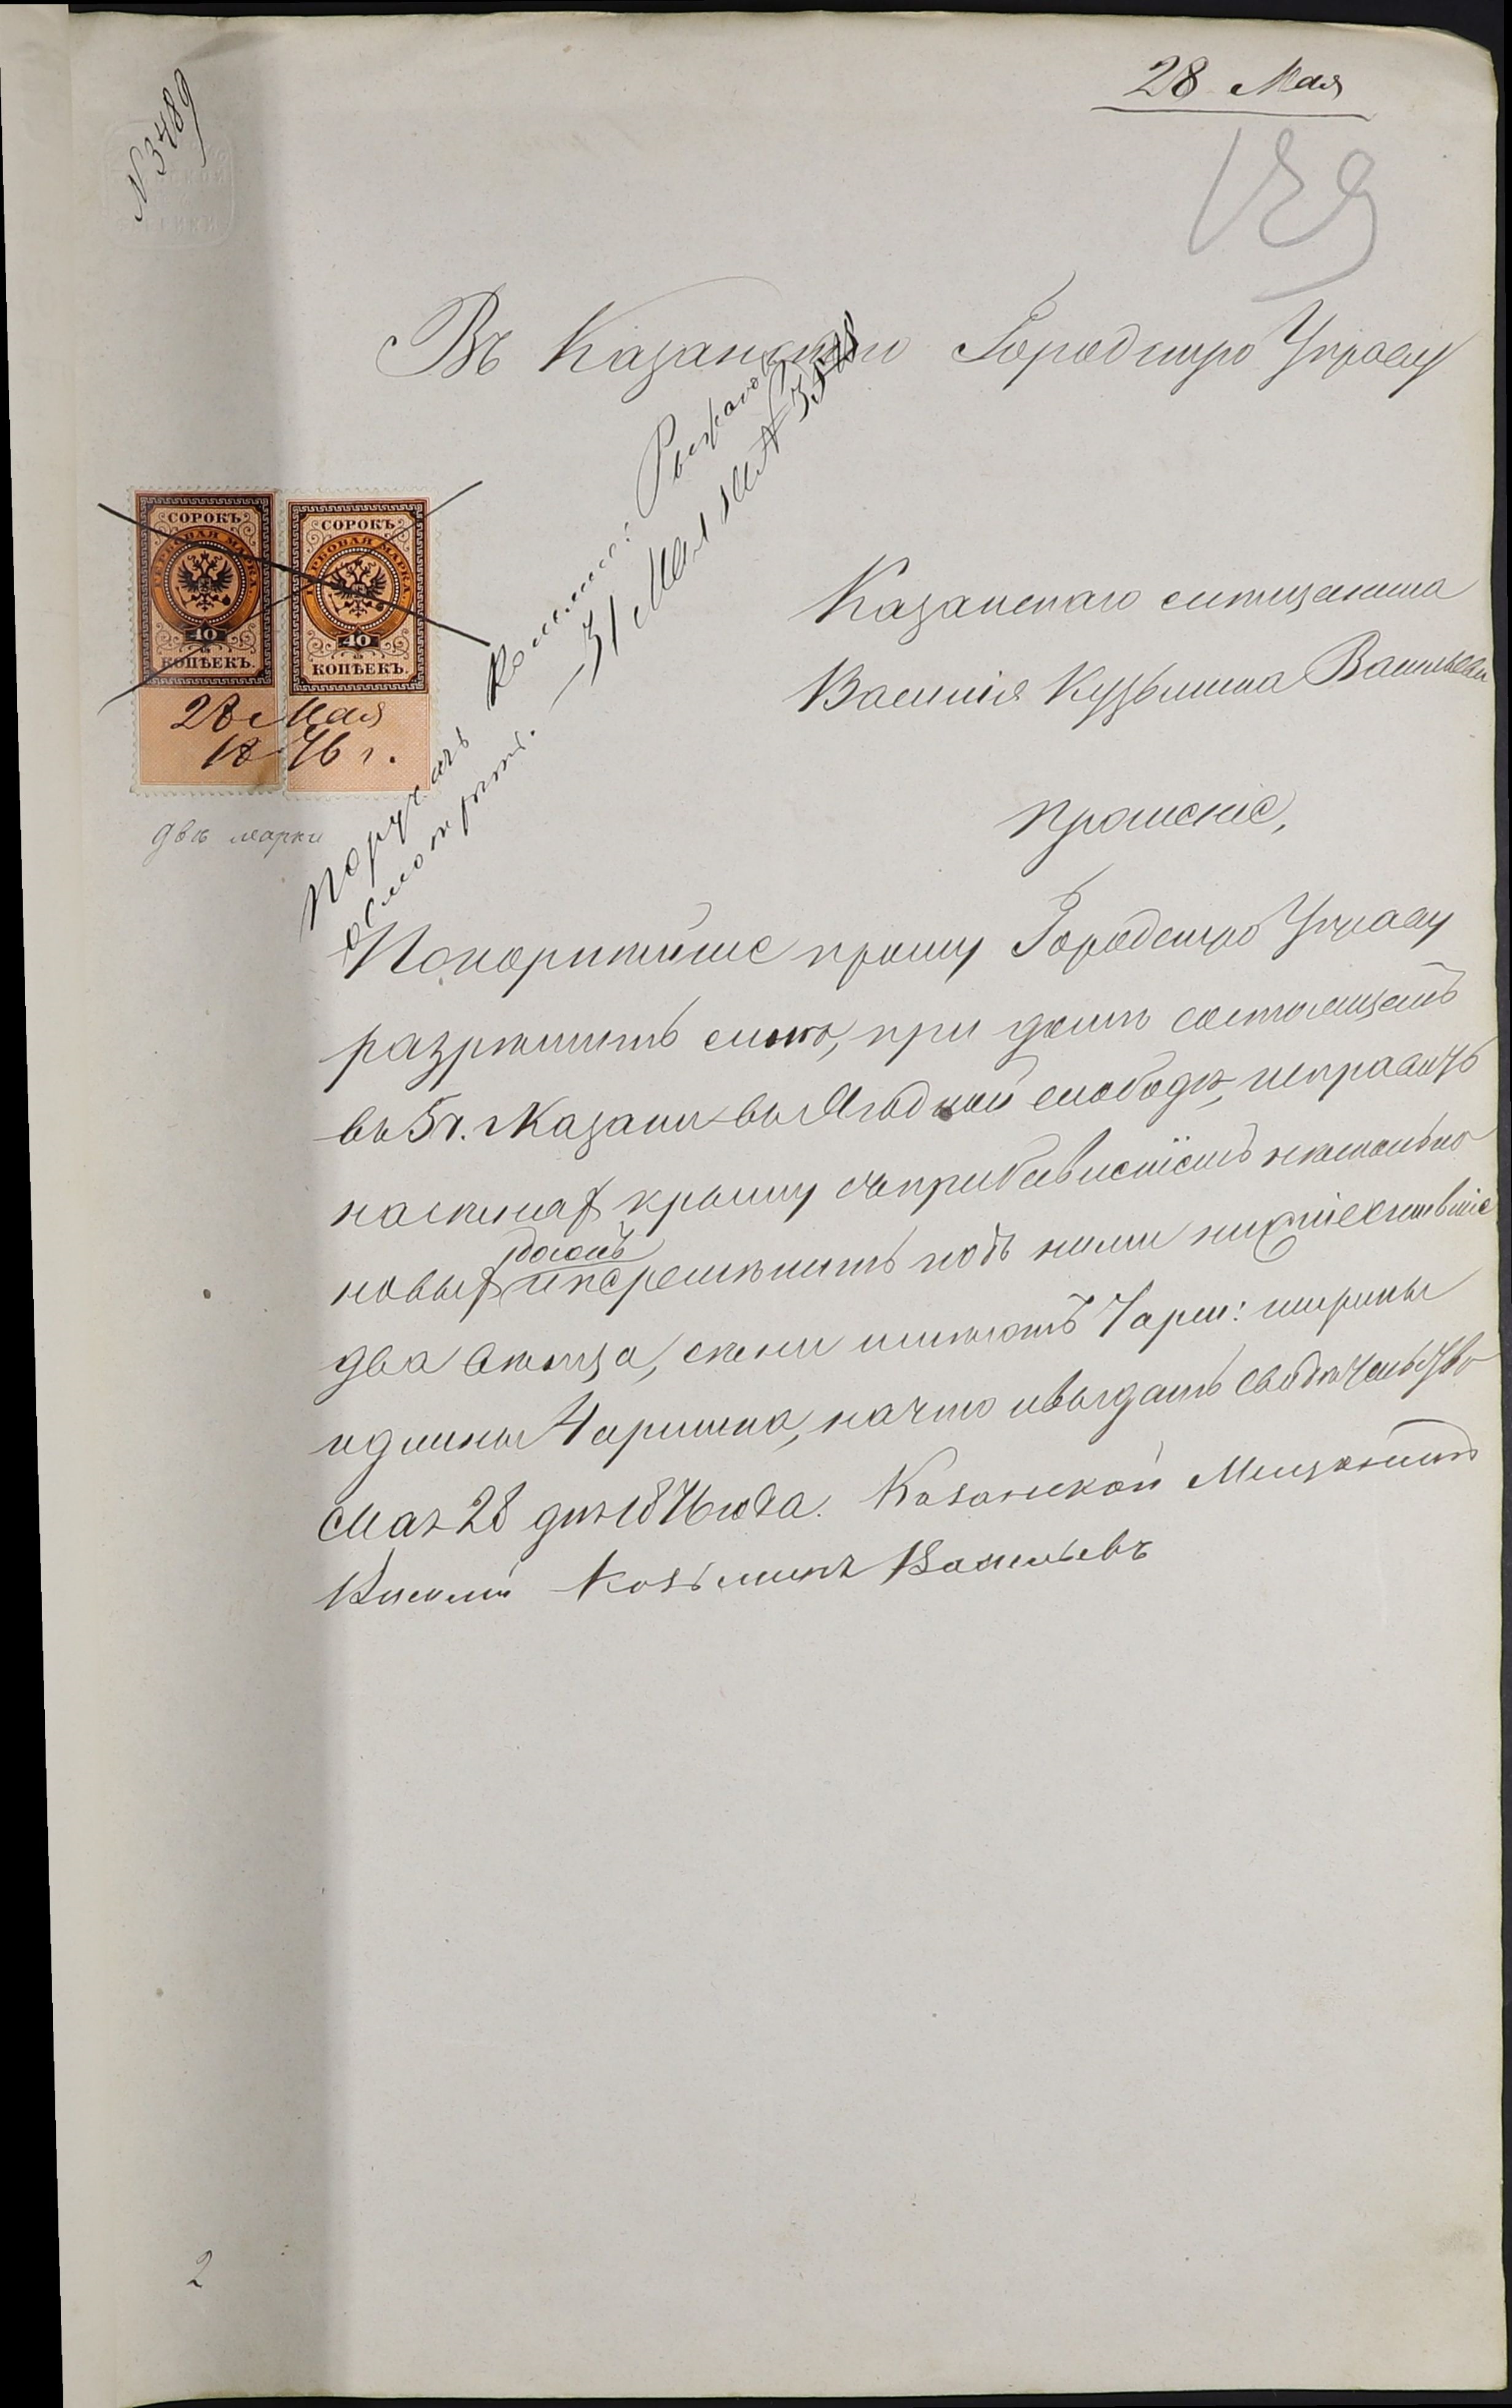 28 Мая
N 3489
Въ Казанскую Городскую Управу
Поручить Коммис: Рыжкову
осмотрить. 31 Мая N 3578
СОРОКЪ
ГЕРБОВАЯ МАРКА
40
КОПѢЕКЪ.
СОРОКЪ
ГЕРБОВАЯ МАРКА
40
КОПѢЕКЪ.
28 Мая
1876 г.
двѣ марки
Казанскаго мѣщанина
Василія Кузьмина Васильева
прошеніе,
Покорнѣйше прошу Городскую Управу
разрѣшить мнѣ, при домѣ состоящемъ
въ 5 ч. г. Казани въ Ягодной слободѣ, исправить
крышу съ прибавленіемъ нѣсколько
новыхъ досокъ и перемѣнить подъ ними
два венца, ширины
и длины 4 аршина, на что и выдать свидѣтельство
Мая 28 дня 1876 года. Казанской Мещенинъ
Василий Козьминъ Васильевъ
2